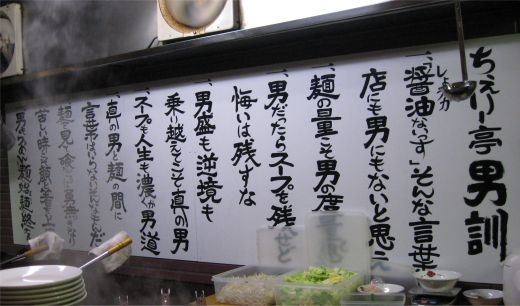 ちぇりー亭 男訓
一、「醤油なっす」そんな言葉
店にも男にもないと思え
一、麺の量こそ男の度
一、男だったらスープを残せど
悔いは残すな
一、男盛も逆境も
乗り越えてこそ真の男
一、スープも人生も濃くが男道
一、真の男と麺の間に
言葉はいらないそんなもんだ
一、麺見て喰わ は勇無きなり
苦しい時
男 麺始麺終